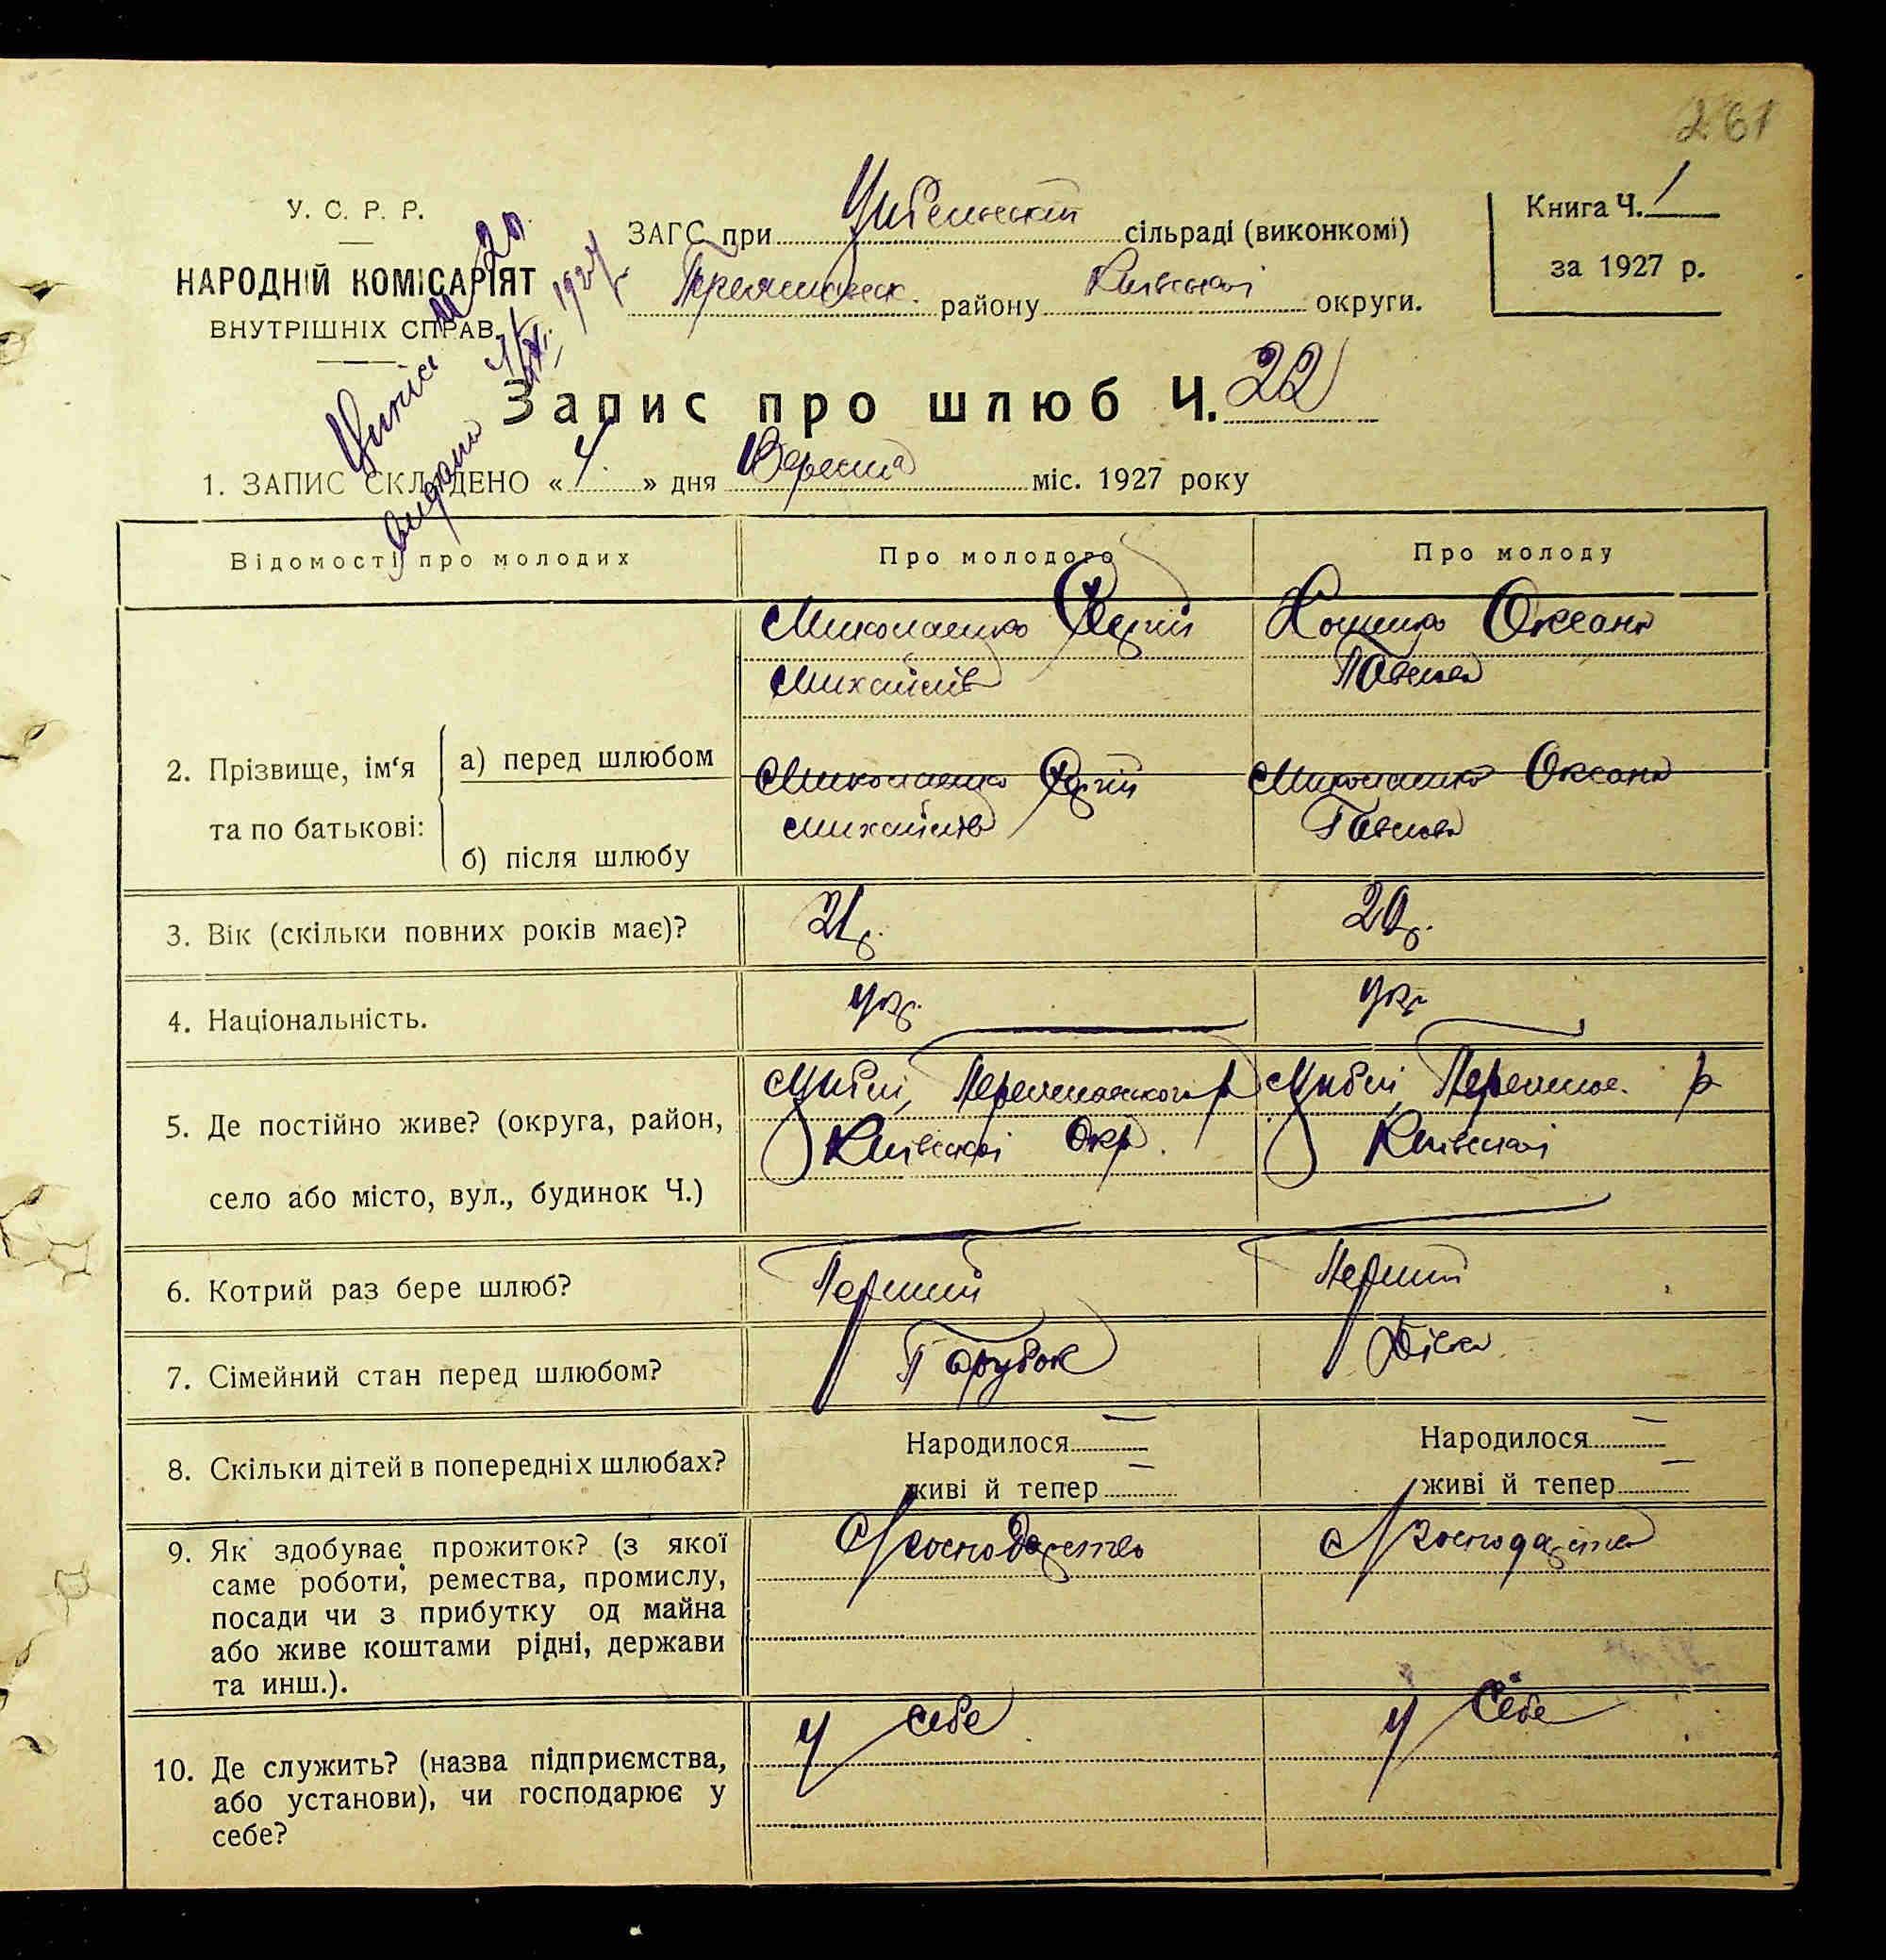 261
У. С. Р. Р.
НАРОДНІЙ КОМІСАРІЯТ
ВНУТРІШНІХ СПРАВ.
ЗАГС при сільраді (виконкомі)
району Київської округи.
Книга Ч. 1
за 1927 р.
1927 р.
Запис про шлюб Ч. 22
1. ЗАПИС СКЛАДЕНО « 4 » дня Вересня міс. 1927 року
Відомості про молодих
Про молодого
Про молоду
2. Прізвище, ім‘я та по батькові:
а) перед шлюбом
б) після шлюбу
Миколаенко Сергій
Михайлів
Оксана
Павлова
Миколаенко Сергій
Михайлів
Миколаенко Оксана
Павлова
3. Вік (скільки повних років має)?
21 р.
20 р.
4. Національність.
укр.
укр
5. Де постійно живе? (округа, район,
село або місто, вул., будинок Ч.)
Цибелі, р
Київської Окр.
Цибелі, р
Київської
6. Котрий раз бере шлюб?
Перший
Перший
7. Сімейний стан перед шлюбом?
Парубок
Дівка
8. Скільки дітей в попередніх шлюбах?
Народилося —
живі й тепер —
Народилося —
живі й тепер —
9. Як здобуває прожиток? (з якої
саме роботи, ремества, промислу,
посади чи з прибутку од майна
або живе коштами рідні, держави
та инш.).
З господарства
З господарства
10. Де служить? (назва підприємства,
або установи), чи господарює у
себе?
У себе
У себе